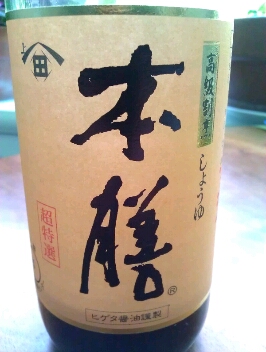 高級割烹
しょうゆ
本膳
超特選
上
田
®
ヒゲタ醤油謹製